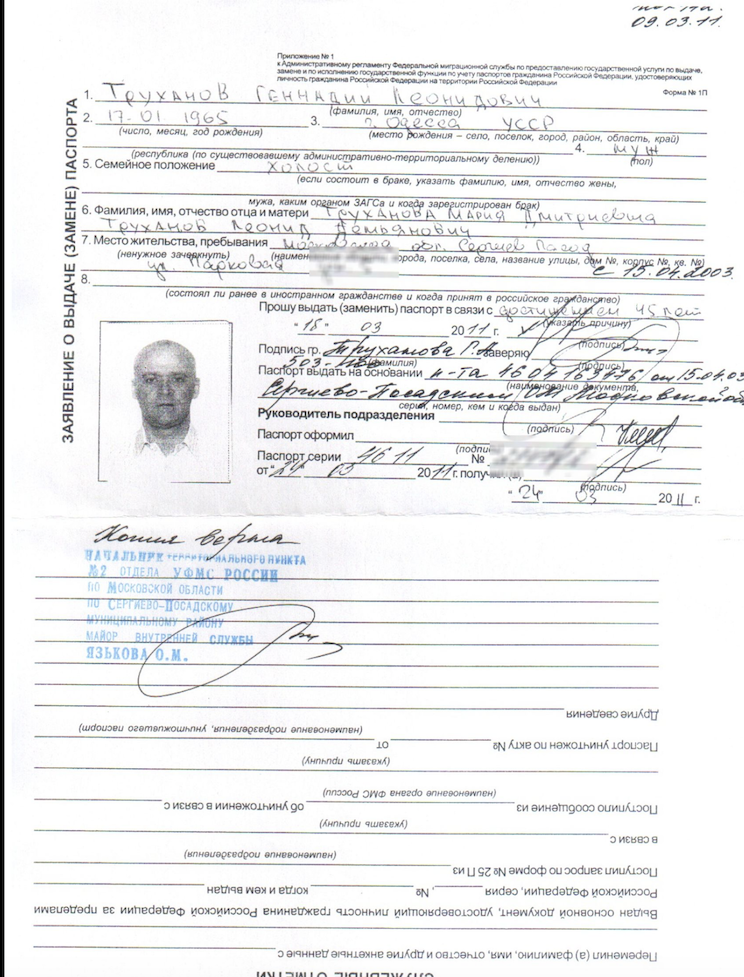 09.03.11.
Приложение № 1
к Административному регламенту Федеральной миграционной службы по предоставлению государственной услуги по выдаче,
замене и по исполнению государственной функции по учету паспортов гражданина Российской Федерации, удостоверяющих
личность гражданина Российской Федерации на территории Российской Федерации
Форма № 1П
ЗАЯВЛЕНИЕ О ВЫДАЧЕ (ЗАМЕНЕ) ПАСПОРТА
1. Труханов Геннадий Леонидович
(фамилия, имя, отчество)
2. 17.01 1965 3. г. Одесса УССР
(число, месяц, год рождения) (место рождения – село, поселок, город, район, область, край)
4. муж
(республика (по существовавшему административно-территориальному делению)) (пол)
5. Семейное положение холост
(если состоит в браке, указать фамилию, имя, отчество жены,
мужа, каким органом ЗАГСа и когда зарегистрирован брак)
6. Фамилия, имя, отчество отца и матери Труханова Мария Дмитриевна
Труханов Леонид Демьянович
7. Место жительства, пребывания Московская обл. Сергиев Посад
(ненужное зачеркнуть) города, поселка, села, название улицы, дом №, корпус №, кв. №)
ул. Парковая с 15.04.2003.
8.
(состоял ли ранее в иностранном гражданстве и когда принят в российское гражданство)
Прошу выдать (заменить) паспорт в связи с достижением 45 лет
(указать причину)
03 2011 г.
(подпись)
Подпись гр. Труханова Г.Л. заверяю
(фамилия) (подпись)
503-
Паспорт выдать на основании п-та 46 04 от 15.04.03
(наименование документа,
Сергиево-Посадским ОМ Московской об
серия, номер, кем и когда выдан)
Руководитель подразделения
(подпись)
Паспорт оформил
(подпись)
Паспорт серии 46 11 №
от "24" 03 2011 г. получил
(подпись)
"24" 03 2011 г.
Копия верна
НАЧАЛЬНИК ТЕРРИТОРИАЛЬНОГО ПУНКТА
№2 ОТДЕЛА УФМС РОССИИ
ПО МОСКОВСКОЙ ОБЛАСТИ
ПО СЕРГИЕВО-ПОСАДСКОМУ
МУНИЦИПАЛЬНОМУ РАЙОНУ
МАЙОР ВНУТРЕННЕЙ СЛУЖБЫ
ЯЗЬКОВА О.М.
Другие сведения
(наименование подразделения, уничтожившего паспорт)
Паспорт уничтожен по акту № от
(указать причину)
(наименование органа ФМС России)
Поступило сообщение из об уничтожении в связи с
(указать причину)
в связи с
(наименование подразделения)
Поступил запрос по форме № 25 П из
Российской Федерации, серия , № когда и кем выдан
Выдан основной документ, удостоверяющий личность гражданина Российской Федерации за пределами
Переменил (а) фамилию, имя, отчество и другие анкетные данные с
СЛУЖЕБНЫЕ ОТМЕТКИ